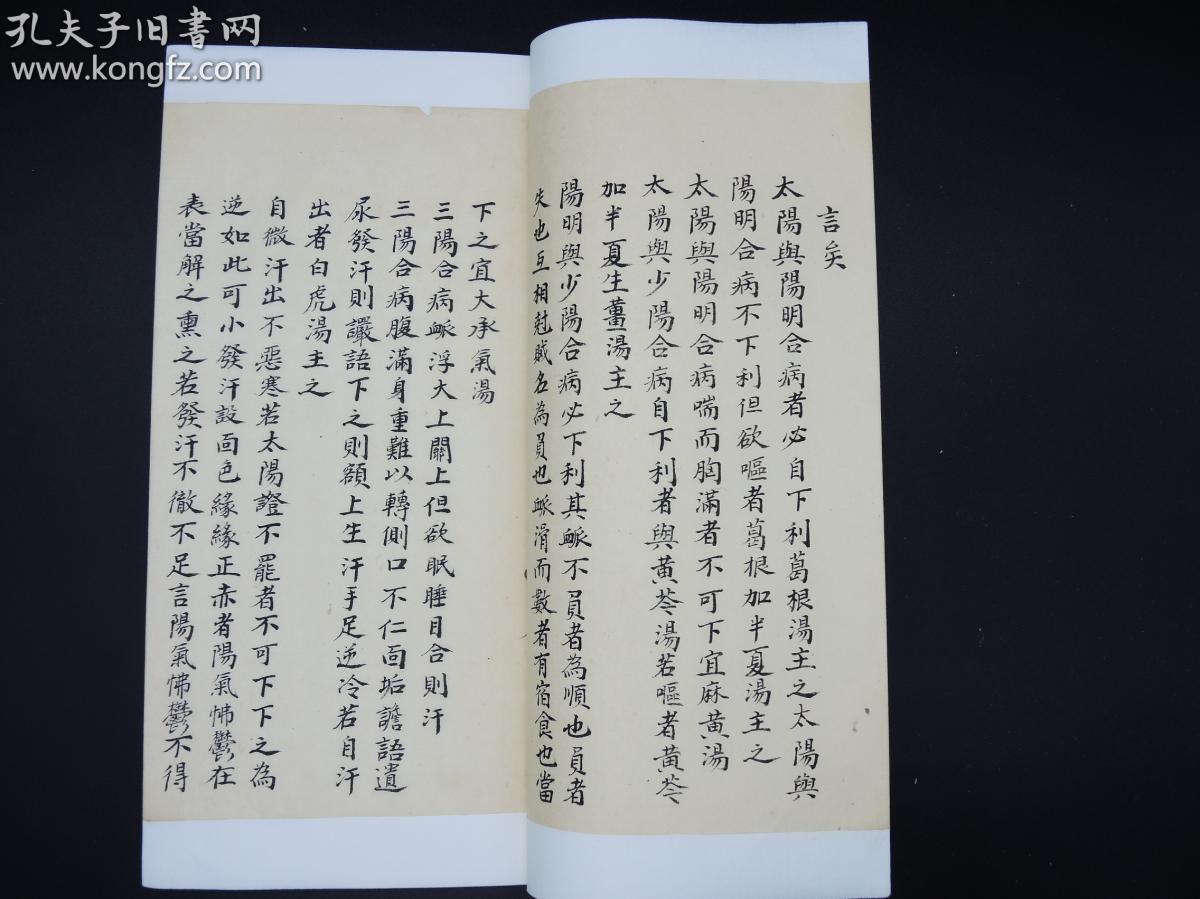 孔夫子旧书网
www.kongfz.com
言矣
太陽與陽明合病者必自下利葛根湯主之太陽與
陽明合病不下利但欲嘔者葛根加半夏湯主之
太陽與陽明合病喘而胸滿者不可下宜麻黄湯
太陽與少陽合病自下利者與黄芩湯若嘔者黄芩
加半夏生薑湯主之
陽明與少陽合病必下利其脈不員者為順也員者
失也互相尅賊名為員也脈滑而數者有宿食也當
下之宜大承氣湯
三陽合病脈浮大上關上但欲眠睡目合則汗
三陽合病腹滿身重難以轉側口不仁面垢譫語遺
尿發汗則讝語下之則額上生汗手足逆冷若自汗
出者白虎湯主之
自微汗出不惡寒若太陽證不罷者不可下下之為
逆如此可小發汗設面色緣緣正赤者陽氣怫鬱在
表當解之熏之若發汗不徹不足言陽氣怫鬱不得